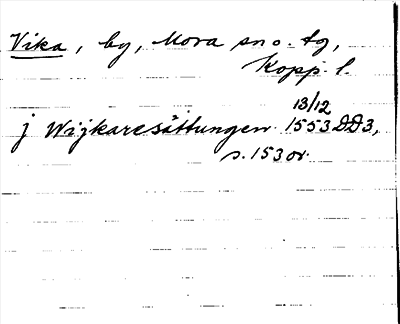 Vika, by, Mora sn o. tg,
Kopp. l.
13/12
j Wijkaresättungen 1553 DD3,
s. 153 or